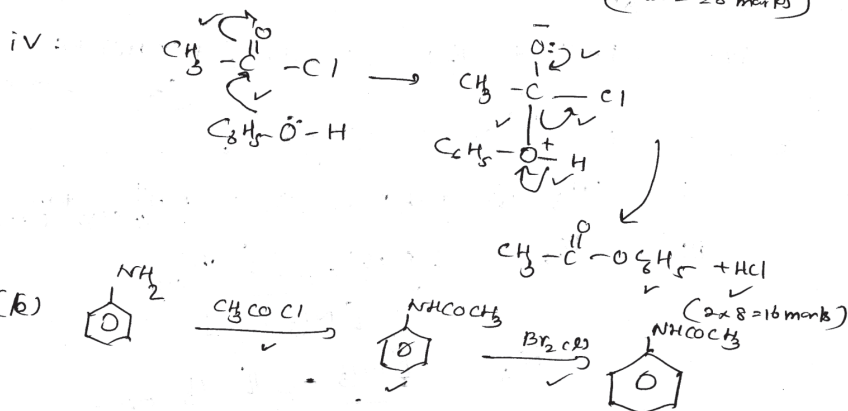 = 28 marks)
iv:
CH3 - C - Cl
O
C6H5 - Ö - H
O:
CH3 - C - Cl
C6H5 - O+ - H
CH3 - C - O C6H5 + HCl
O
(2x8=16 marks)
(b)
NH2
CH3COCl
NHCOCH3
Br2 (l)
NHCOCH3